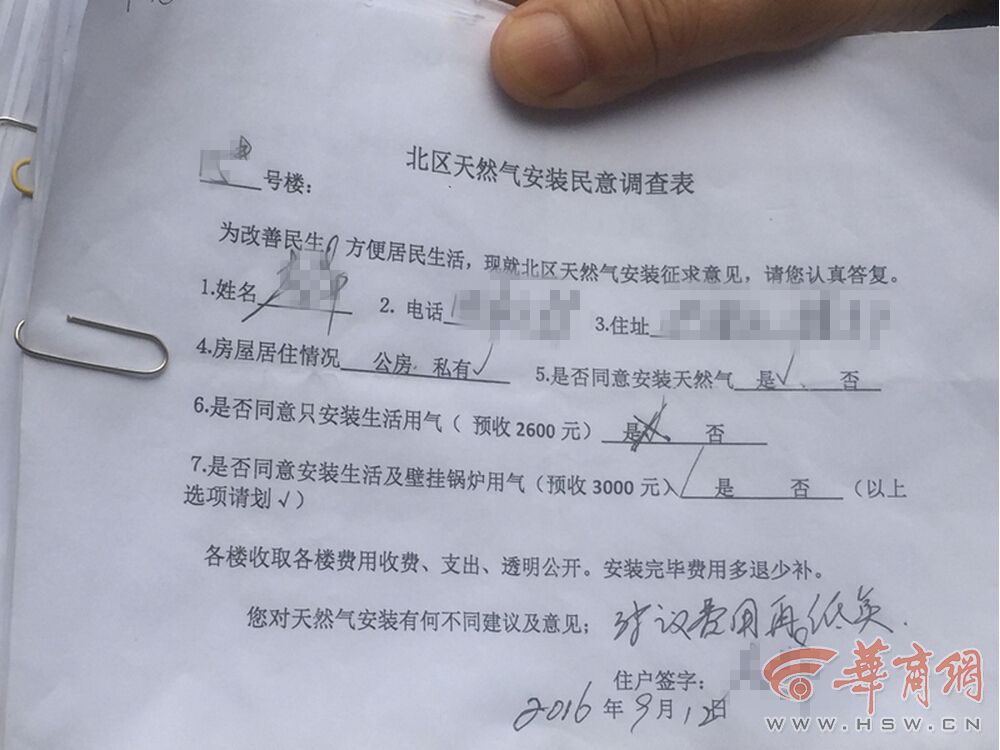 北区天然气安装民意调查表
号楼:
为改善民生，方便居民生活，现就北区天然气安装征求意见，请您认真答复。
1.姓名 2. 电话 3.住址
4.房屋居住情况 公房. 私有√ 5.是否同意安装天然气 是√、 否
6.是否同意只安装生活用气（ 预收2600元） 是 否
7.是否同意安装生活及壁挂锅炉用气（预收3000元）√ 是 否 （以上
选项请划√）
各楼收取各楼费用收费、支出、透明公开。安装完毕费用多退少补。
您对天然气安装有何不同建议及意见； 建议费用再低矣.
住户签字:
2016年9月12日
華商網
WWW.HSW.CN